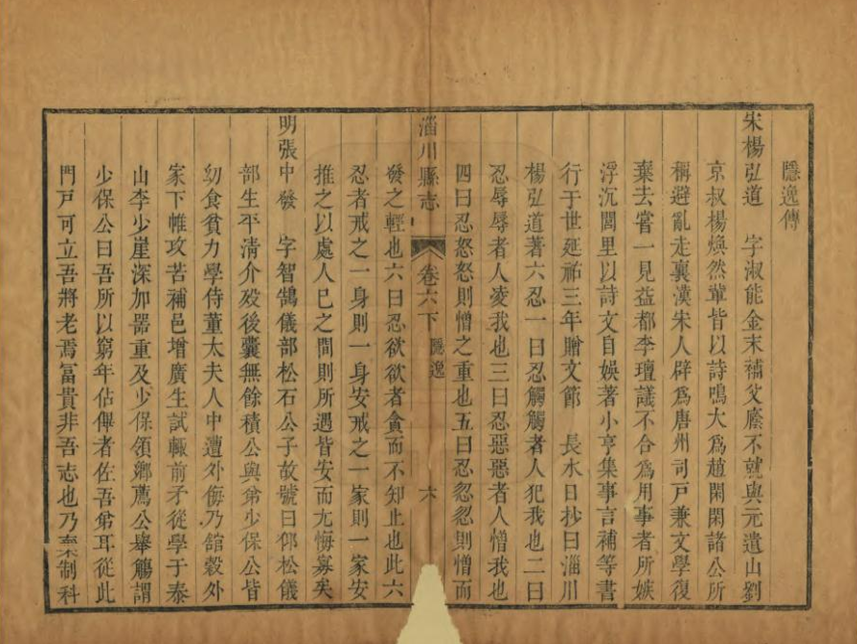 隱逸傳
宋楊弘道　字淑能金末補父廕不就與元遺山劉
京叔楊煥然輩皆以詩鳴大為趙閑閑諸公所
稱避亂走襄漢宋人辟為唐州司戶兼文學復
棄去嘗一見益都李璮議不合為用事者所嫉
浮沉閭里以詩文自娛著小亨集事言補等書
行于世延祐三年贈文節　長水日抄曰淄川
楊弘道著六忍一曰忍觸觸者人犯我也二曰
忍辱辱者人凌我也三曰忍惡惡者人憎我也
四曰忍怒怒則憎之重也五曰忍忿忿則憎而
淄川縣志　卷六下　隱逸　六
發之輕也六曰忍欲欲者貪而不知止也此六
忍者戒之一身則一身安戒之一家則一家安
推之以處人己之間則所遇皆安而尤悔寡矣
明張中發　字智鵠儀部松石公子故號曰仰松儀
部生平清介歿後囊無餘積公與弟少保公皆
幼食貧力學侍董太夫人中遭外侮乃館穀外
家下帷攻苦補邑增廣生試輒前矛從學于泰
山李少崖深加器重及少保領鄉薦公舉觴謂
少保公曰吾所以窮年佔俾者佐吾弟耳從此
門戶可立吾將老焉富貴非吾志也乃棄制科